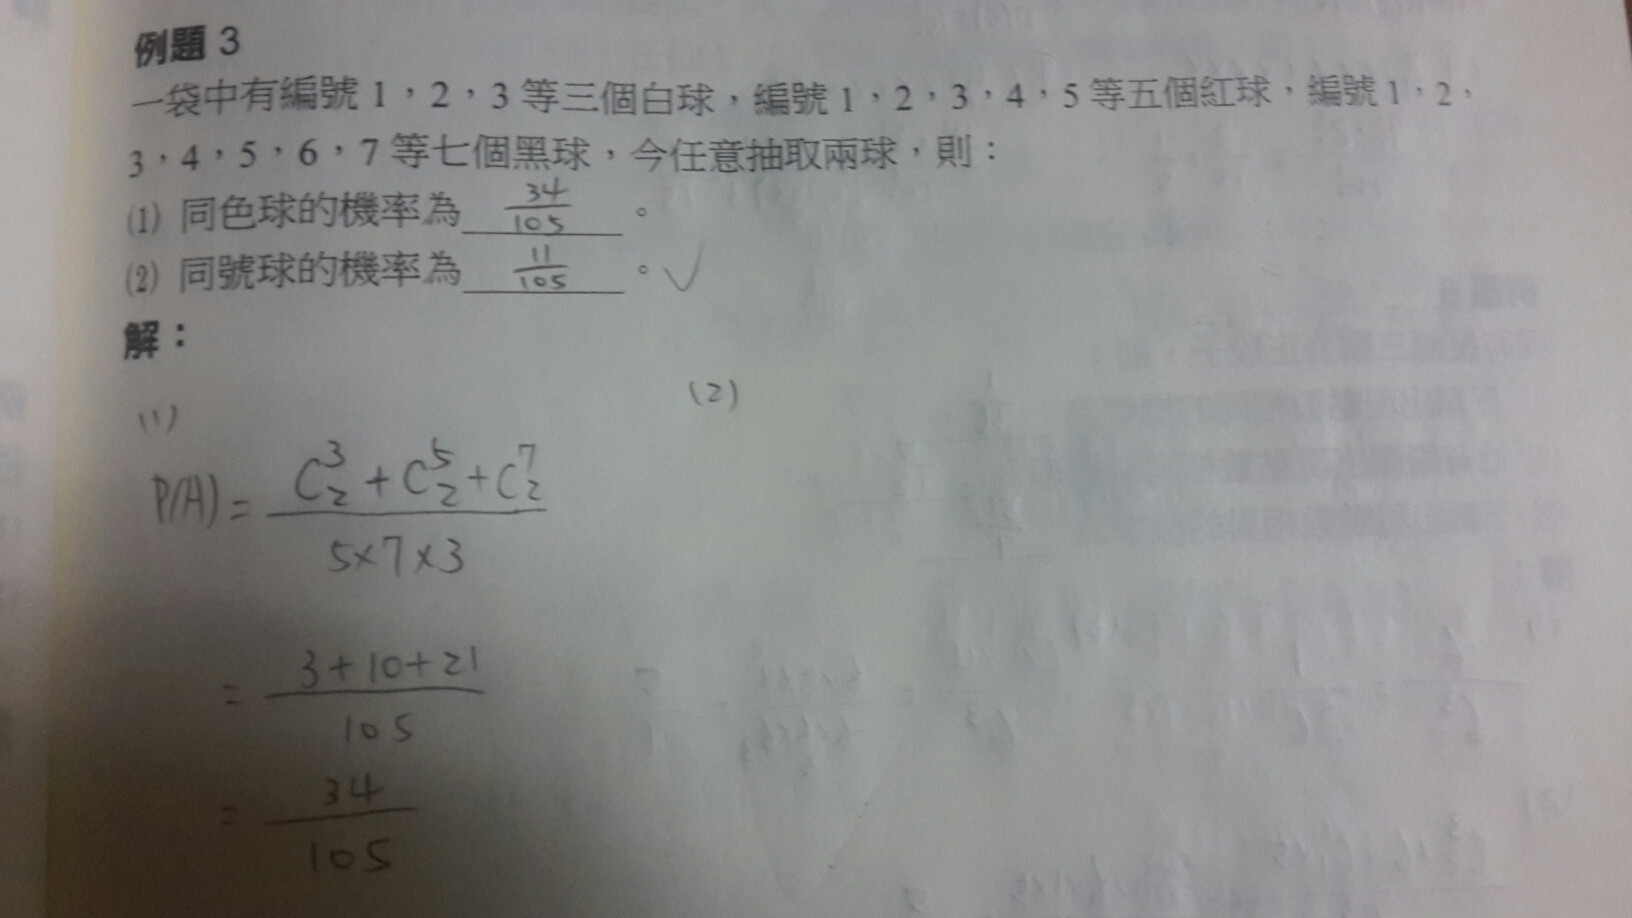 例題 3
一袋中有編號 1，2，3 等三個白球，編號 1，2，3，4，5 等五個紅球，編號 1，2，
3，4，5，6，7 等七個黑球，今任意抽取兩球，則：
(1) 同色球的機率為 34/105 。
(2) 同號球的機率為 11/105 。✓
解：
(1) (2)
P(A) = (C³₂ + C⁵₂ + C⁷₂) / (5×7×3)
= (3+10+21) / 105
= 34 / 105